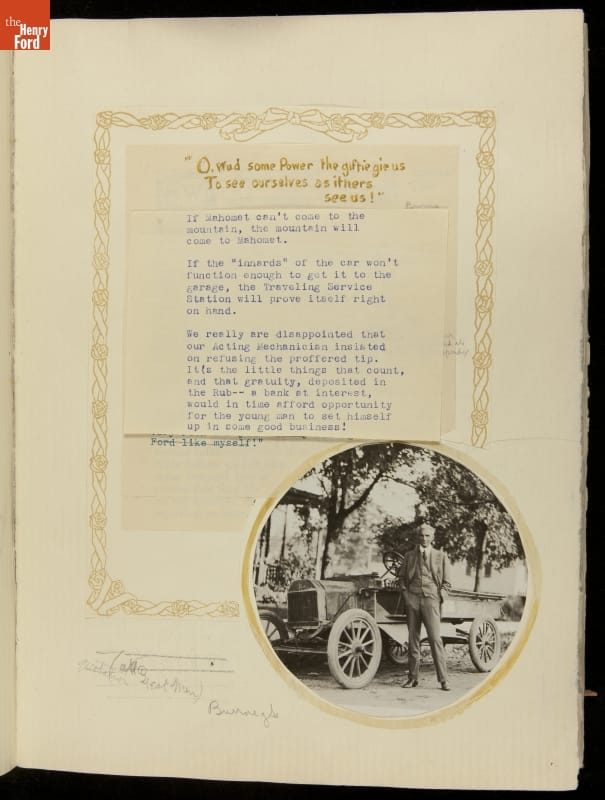 the
Henry
Ford
"O, wad some Power the giftie gie us
To see ourselves as ithers
see us!"
Burns
If Mahomet can't come to the
mountain, the mountain will
come to Mahomet.
If the "innards" of the car won't
function enough to get it to the
garage, the Traveling Service
Station will prove itself right
on hand.
We really are disappointed that
our Acting Mechanician insisted
on refusing the proffered tip.
It's the little things that count,
and that gratuity, deposited in
the Rub-- a bank at interest,
would in time afford opportunity
for the young man to set himself
up in some good business!
Ford like myself!"
Great Men
Burroughs